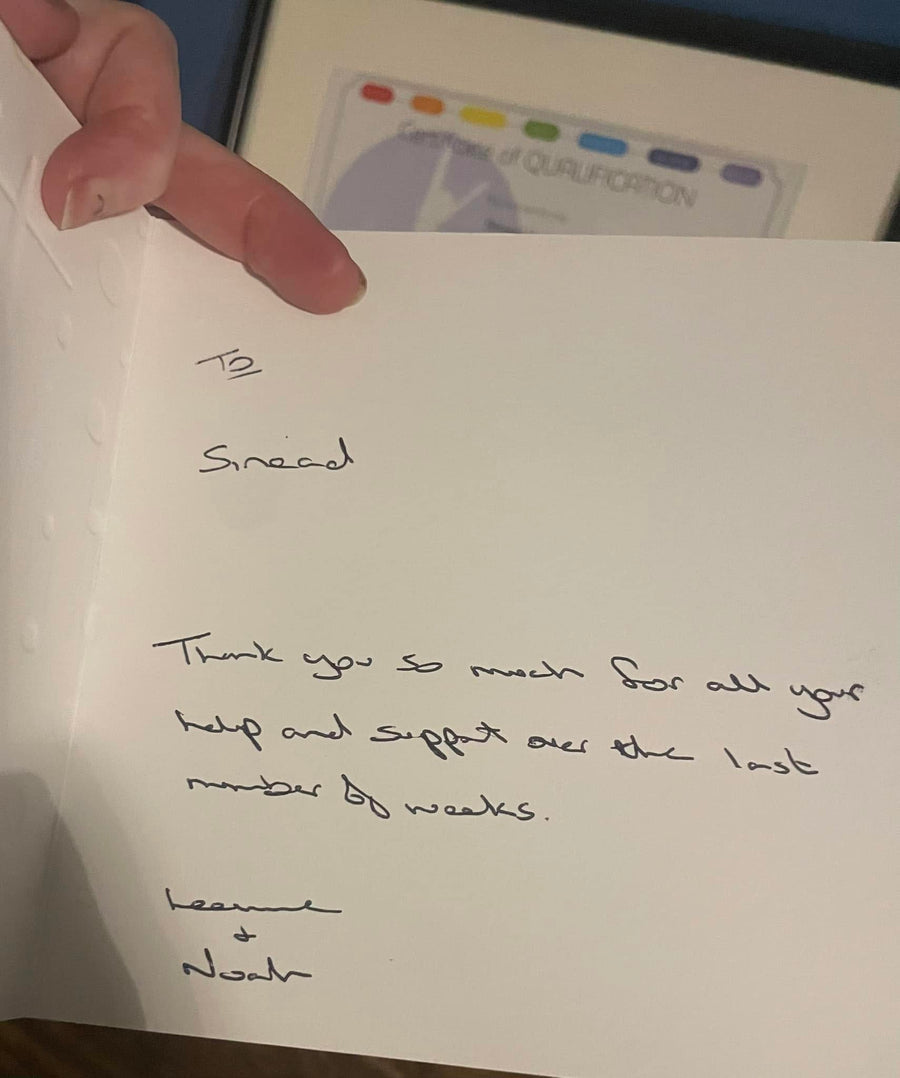 Certificate of QUALIFICATION
To
Sinead
Thank you so much for all your
help and support over the last
number of weeks.
Leanne
+
Noah